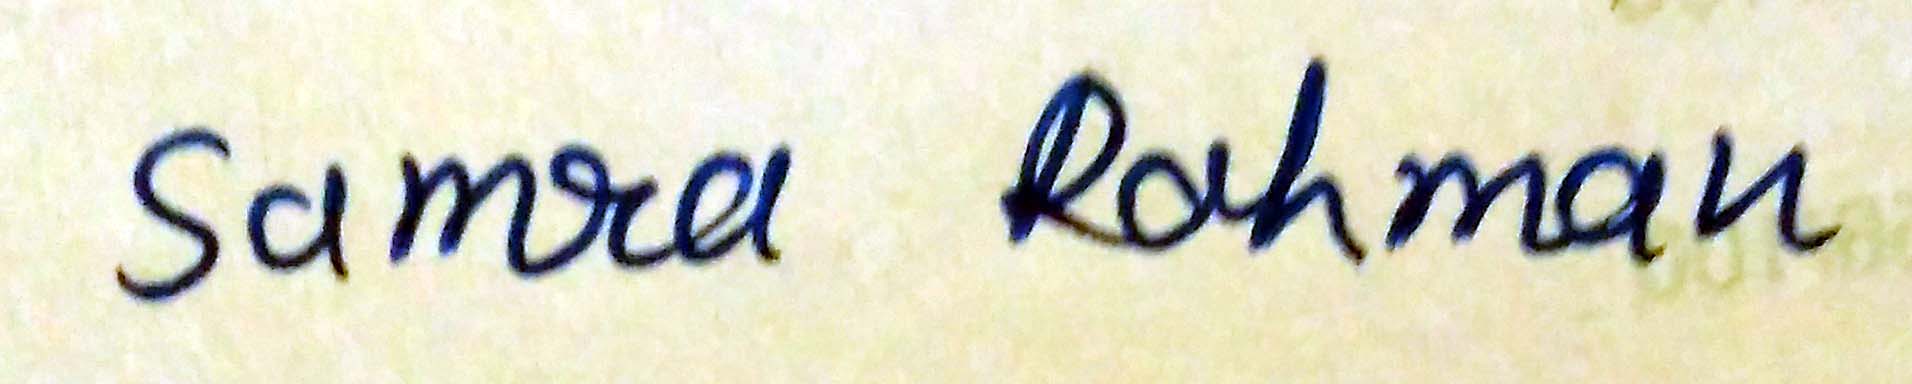 Samra Rahman